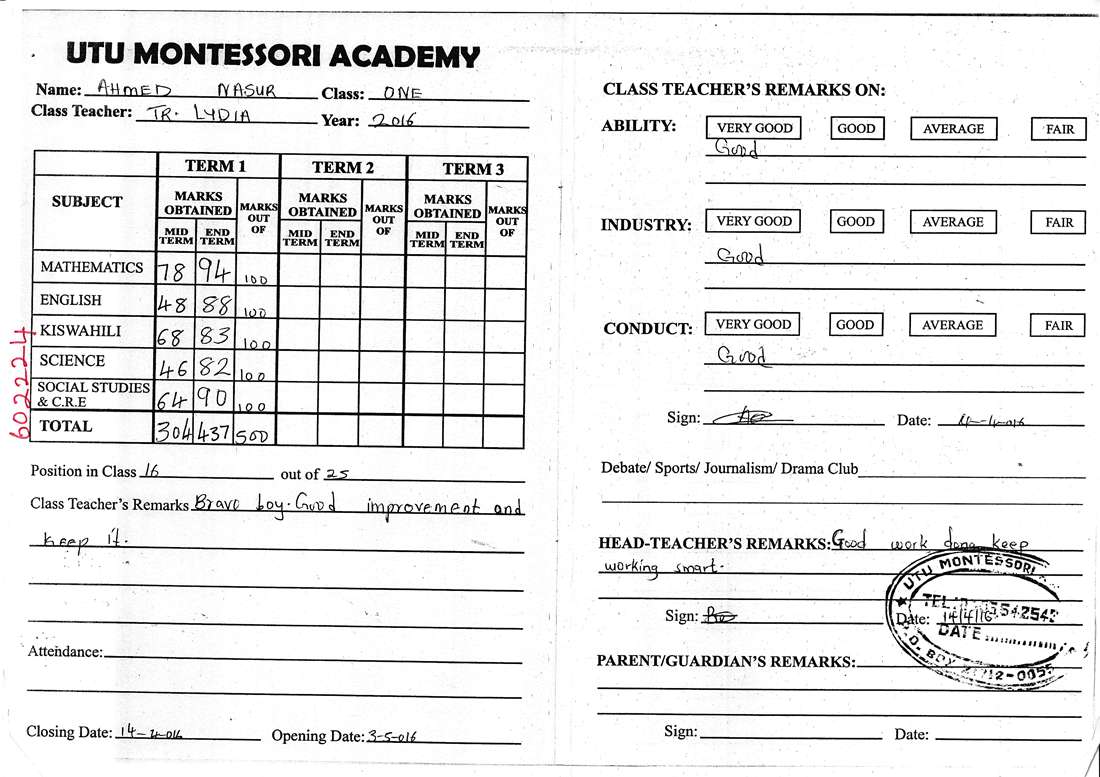 UTU MONTESSORI ACADEMY
Name: AHMED NASUR Class: ONE
Class Teacher: TR. LYDIA Year: 2016
SUBJECT TERM 1 TERM 2 TERM 3
MARKS OBTAINED MARKS OUT OF MARKS OBTAINED MARKS OUT OF MARKS OBTAINED MARKS OUT OF
MID TERM END TERM MID TERM END TERM MID TERM END TERM
MATHEMATICS 78 94 100
ENGLISH 48 88 100
KISWAHILI 68 83 100
SCIENCE 46 82 100
SOCIAL STUDIES & C.R.E 64 90 100
TOTAL 304 437 500
602224
Position in Class 16 out of 25
Class Teacher's Remarks Bravo boy. Good improvement and
keep it.
Attendance:
Closing Date: 14-4-016 Opening Date: 3-5-016
CLASS TEACHER'S REMARKS ON:
ABILITY: VERY GOOD GOOD AVERAGE FAIR
Good
INDUSTRY: VERY GOOD GOOD AVERAGE FAIR
Good
CONDUCT: VERY GOOD GOOD AVERAGE FAIR
Good
Sign: Date: 14-4-016
Debate/ Sports/ Journalism/ Drama Club
HEAD-TEACHER'S REMARKS: Good work done keep
working smart.
Sign: Date: 14/4/16
UTU MONTESSORI
TEL:
DATE
PARENT/GUARDIAN'S REMARKS:
Sign: Date: